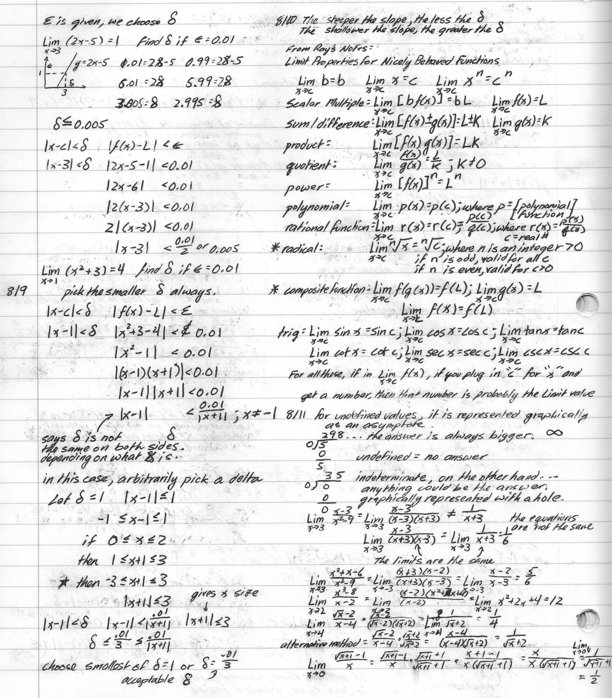 ε is given, we choose δ
Lim (2x-5)=1 Find δ if ε=0.01
x→3
y=2x-5 0.01=2δ-5 0.99=2δ-5
6.01=2δ 5.99=2δ
3.005=δ 2.995=δ
1
3
δ≤0.005
|x-c|<δ |f(x)-L|<ε
|x-3|<δ |2x-5-1|<0.01
|2x-6| <0.01
|2(x-3)| <0.01
2|(x-3)| <0.01
|x-3| <0.01/2 or 0.005
Lim (x²+3)=4 find δ if ε=0.01
x→1
8/9 pick the smaller δ always.
|x-c|<δ |f(x)-L|<ε
|x-1|<δ |x²+3-4|<0.01
|x²-1| <0.01
|(x-1)(x+1)|<0.01
|x-1||x+1|<0.01
|x-1| < 0.01/|x+1| ; x≠-1
says δ is not δ
the same on both sides.
depending on what δ is.
in this case, arbitrarily pick a delta
Let δ=1 |x-1|≤1
-1≤x-1≤1
if 0≤x≤2
then 1≤x+1≤3
* then -3≤x+1≤3
|x+1|≤3 gives x size
|x-1|<δ |x-1|<.01/|x+1| |x+1|≤3
δ≤.01/3≤.01/|x+1|
choose smallest of δ=1 or δ=.01/3
acceptable δ
8/10 The steeper the slope, the less the δ
The shallower the slope, the greater the δ
From Ray's Notes:
Limit Properties for Nicely Behaved Functions
Lim b=b Lim x=c Lim xⁿ=cⁿ
x→c x→c x→c
Scalar Multiple= Lim [bf(x)]=bL Lim f(x)=L
x→c x→c
sum/difference= Lim [f(x)±g(x)]=L±K Lim g(x)=K
x→c x→c
product= Lim [f(x)g(x)]=LK
x→c
quotient= Lim f(x)/g(x)=L/K; K≠0
x→c
power= Lim [f(x)]ⁿ=Lⁿ
x→c
polynomial= Lim p(x)=p(c); where p=[polynomial function]
x→c
rational function= Lim r(x)=r(c)=p(c)/q(c); where r(x)=p(x)/q(x)
x→c c=real#
* radical: Lim ⁿ√x=ⁿ√c; where n is an integer >0
x→c if n is odd, valid for all c
if n is even, valid for c>0
* composite function= Lim f(g(x))=f(L); Lim g(x)=L
x→c x→c
Lim f(x)=f(L)
x→L
trig= Lim sin x=sin c; Lim cos x=cos c; Lim tan x=tan c
x→c x→c x→c
Lim cot x=cot c; Lim sec x=sec c; Lim csc x=csc c
x→c x→c x→c
For all these, if in Lim f(x), if you plug in "c" for "x" and
x→c
get a number, then that number is probably the limit value
8/11 for undefined values, it is represented graphically
as an asymptote.
298... the answer is always bigger. ∞
0)5
0
5 undefined = no answer
35 indeterminate, on the other hand...
0)0 anything could be the answer.
0 graphically represented with a hole.
Lim x-3/x²-9 = Lim x-3/(x-3)(x+3) ≠ 1/x+3 the equations
x→3 x→3 are not the same
Lim x-3/(x+3)(x-3) = Lim 1/x+3 = 1/6
x→3 x→3
The limits are the same
Lim x²+x-6/x²-9 = Lim (x+3)(x-2)/(x+3)(x-3) = Lim x-2/x-3 = 5/6
x→-3 x→-3 x→-3
Lim x³-8/x-2 = Lim (x-2)(x²+2x+4)/(x-2) = Lim x²+2x+4=12
x→2 x→2 x→2
Lim √x-2/x-4 = √x-2/(√x-2)(√x+2) = Lim 1/√x+2 = 1/4
x→4 x→4
alternative method= √x-2/x-4 · √x+2/√x+2 = x-4/(x-4)(√x+2) = 1/√x+2
Lim √x+1 -1/x = √x+1 -1/x · √x+1 +1/√x+1 +1 = x+1-1/x(√x+1 +1) = x/x(√x+1 +1) = Lim 1/√x+1 +1
x→0 x→0
= 1/2